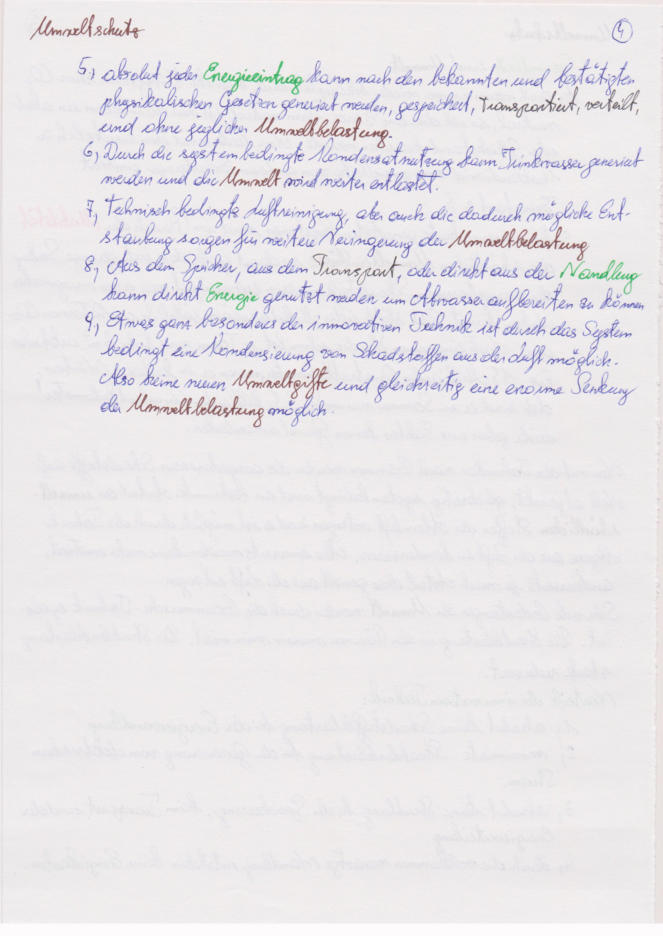 Umweltschutz
4
5., absolut jeder Energieeintrag kann nach den bekannten und bestätigten
physikalischen Gesetzen generiert werden, gespeichert, transportiert, verteilt,
und ohne jeglicher Umweltbelastung.
6, Durch die systembedingte Kondensatnutzung kann Trinkwasser generiert
werden und die Umwelt wird weiter entlastet.
7, Technisch bedingte Luftreinigung, aber auch die dadurch mögliche Ent-
staubung sorgen für weitere Veringerung der Umweltbelastung
8, Aus dem Speicher, aus dem Transport, oder direkt aus der Wandlung
kann direkt Energie genutzt werden um Abwasser aufbereiten zu können
9, Etwas ganz besonderes der innovativen Technik ist durch das System
bedingt eine Kondensierung von Schadstoffen aus der Luft möglich.
Also keine neuen Umweltgifte und gleichzeitig eine enorme Senkung
der Umweltbelastung möglich.